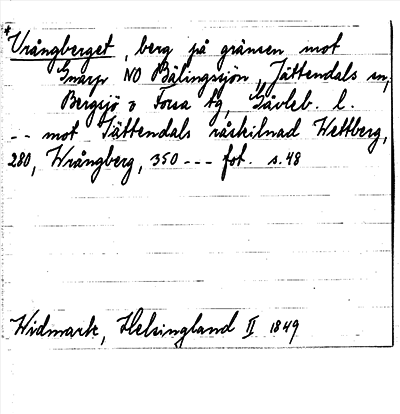 *Vrångberget, berg på gränsen mot
Gnarp NO Bälingssjön, Jättendals sn,
Bergsjö o Forsa tg, Gävleb. l.
-- mot Jättendals råskilnad Wettberg,
280, Wrångberg, 350 --- fot. s. 48
Widmark, Helsingland II 1849